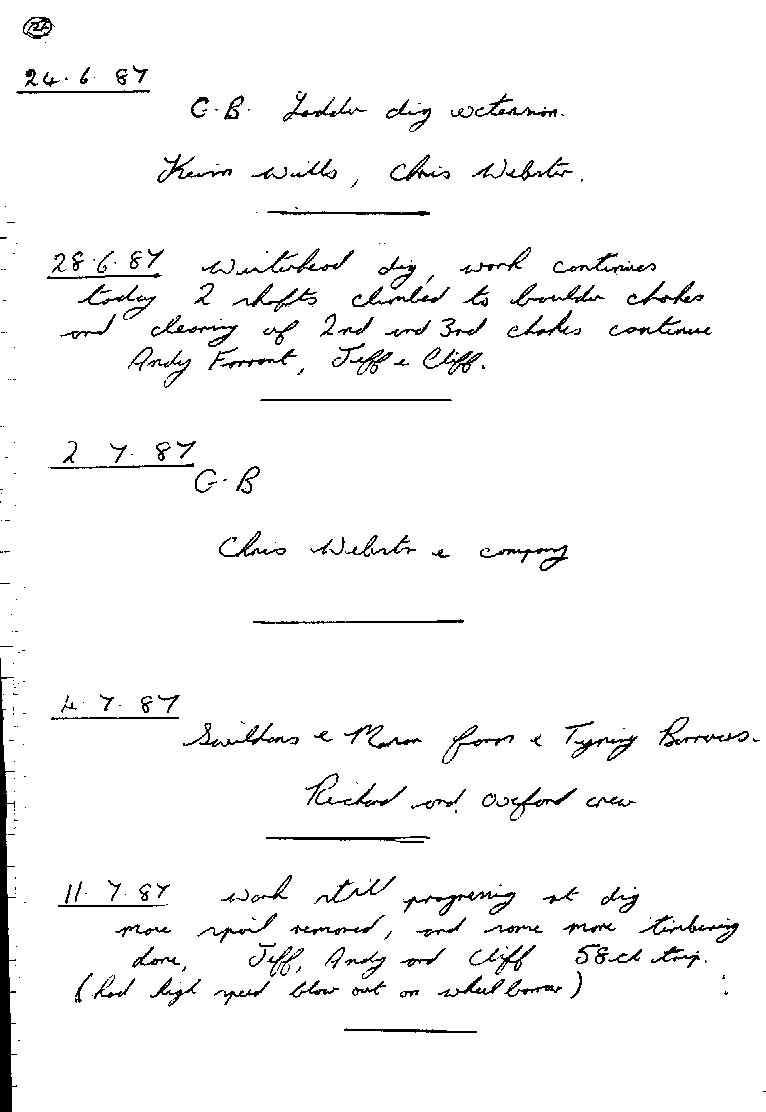 24.6.87
G.B. Ladder dig extension.
Kevin Wills, Chris Webster.
28.6.87 Winterhead dig, work continues
today 2 shafts climbed to boulder chokes
and clearing of 2nd and 3rd chokes continue
Andy Farrant, Jeff & Cliff.
2 7. 87
G.B
Chris Webster & company
4.7.87
Swildons & Manor farm & Tyning Barrows.
Richard and Oxford crew
11.7.87 Work still progressing at dig
more spoil removed, and some more timbering
done, Jeff, Andy and Cliff 58th trip.
(had high speed blow out on wheelbarrow)